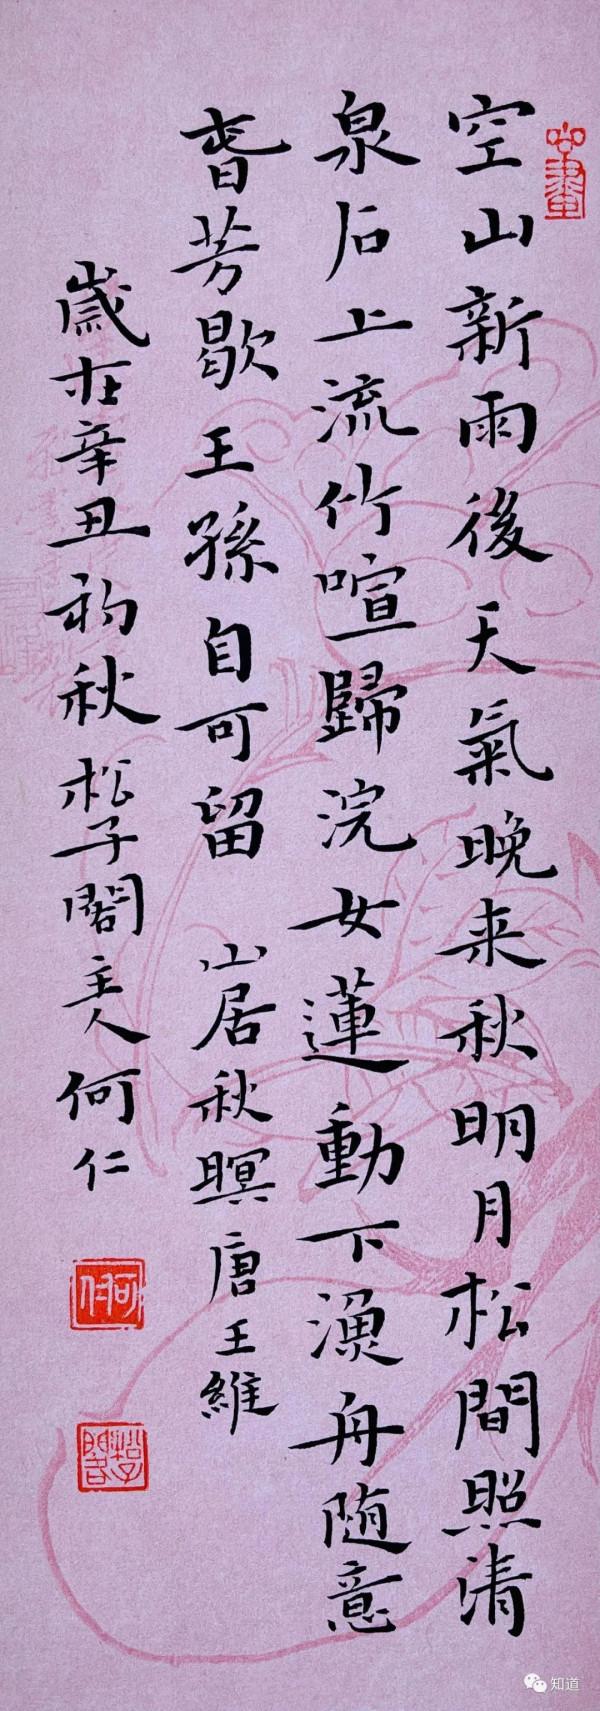 空山新雨後天氣晚来秋明月松間照清
泉石上流竹喧歸浣女蓮動下漁舟随意
春芳歇王孫自可留 山居秋暝唐王維
歲在辛丑初秋松子閣主人何仁
松子閣
知道